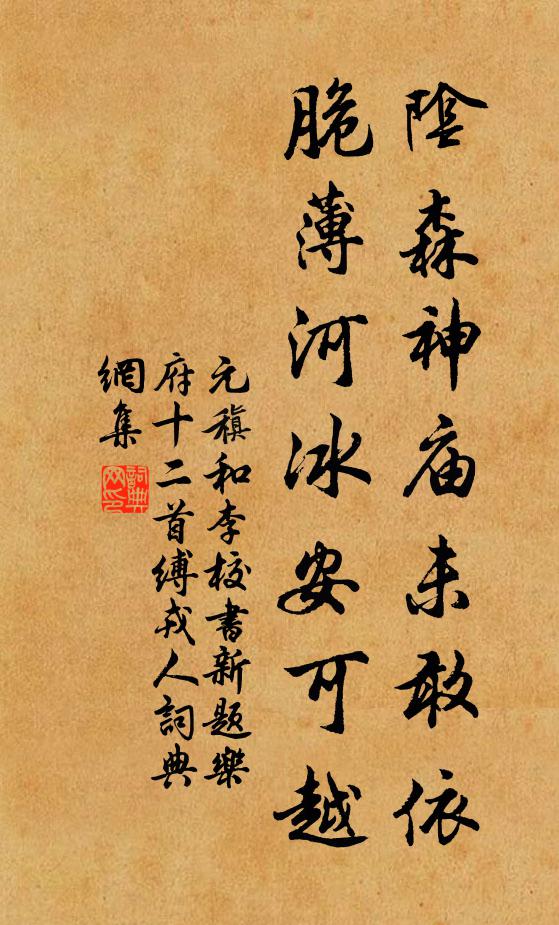 陰森神庙未敢依
脆薄河冰安可越
元稹和李校書新題樂
府十二首縛戎人詞典
網集
詞典网印